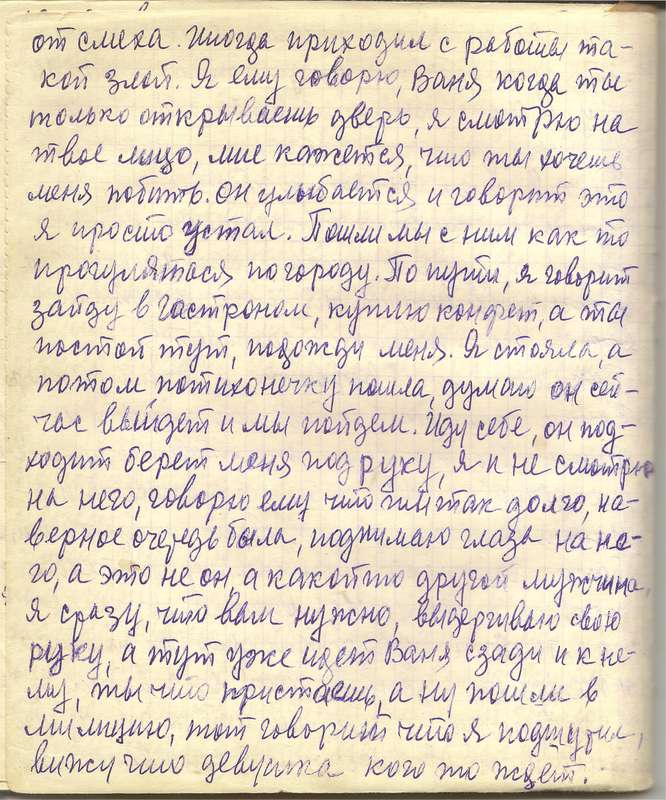 от смеха. Иногда приходил с работы та-
кой злой. Я ему говорю, Ваня когда ты
только открываешь дверь, я смотрю на
твое лицо, мне кажется, что ты хочешь
меня побить. Он улыбается и говорит это
я просто устал. Пошли мы с ним как то
прогуляться по городу. По пути, я говорит
зайду в гастроном, куплю конфет, а ты
постой тут, подожди меня. Я стояла, а
потом потихонечку пошла, думаю он сей-
час выйдет и мы пойдем. Иду себе, он под-
ходит берет меня под руку, я и не смотрю
на него, говорю ему что ты так долго, на-
верное очередь была, поднимаю глаза на не-
го, а это не он, а какой то другой мужчина,
я сразу, что вам нужно, выдергиваю свою
руку, а тут уже идет Ваня сзади и к не-
му, ты что пристаешь, а ну пошли в
милицию, тот говорит что я подшутил,
вижу что девушка кого то ждет.